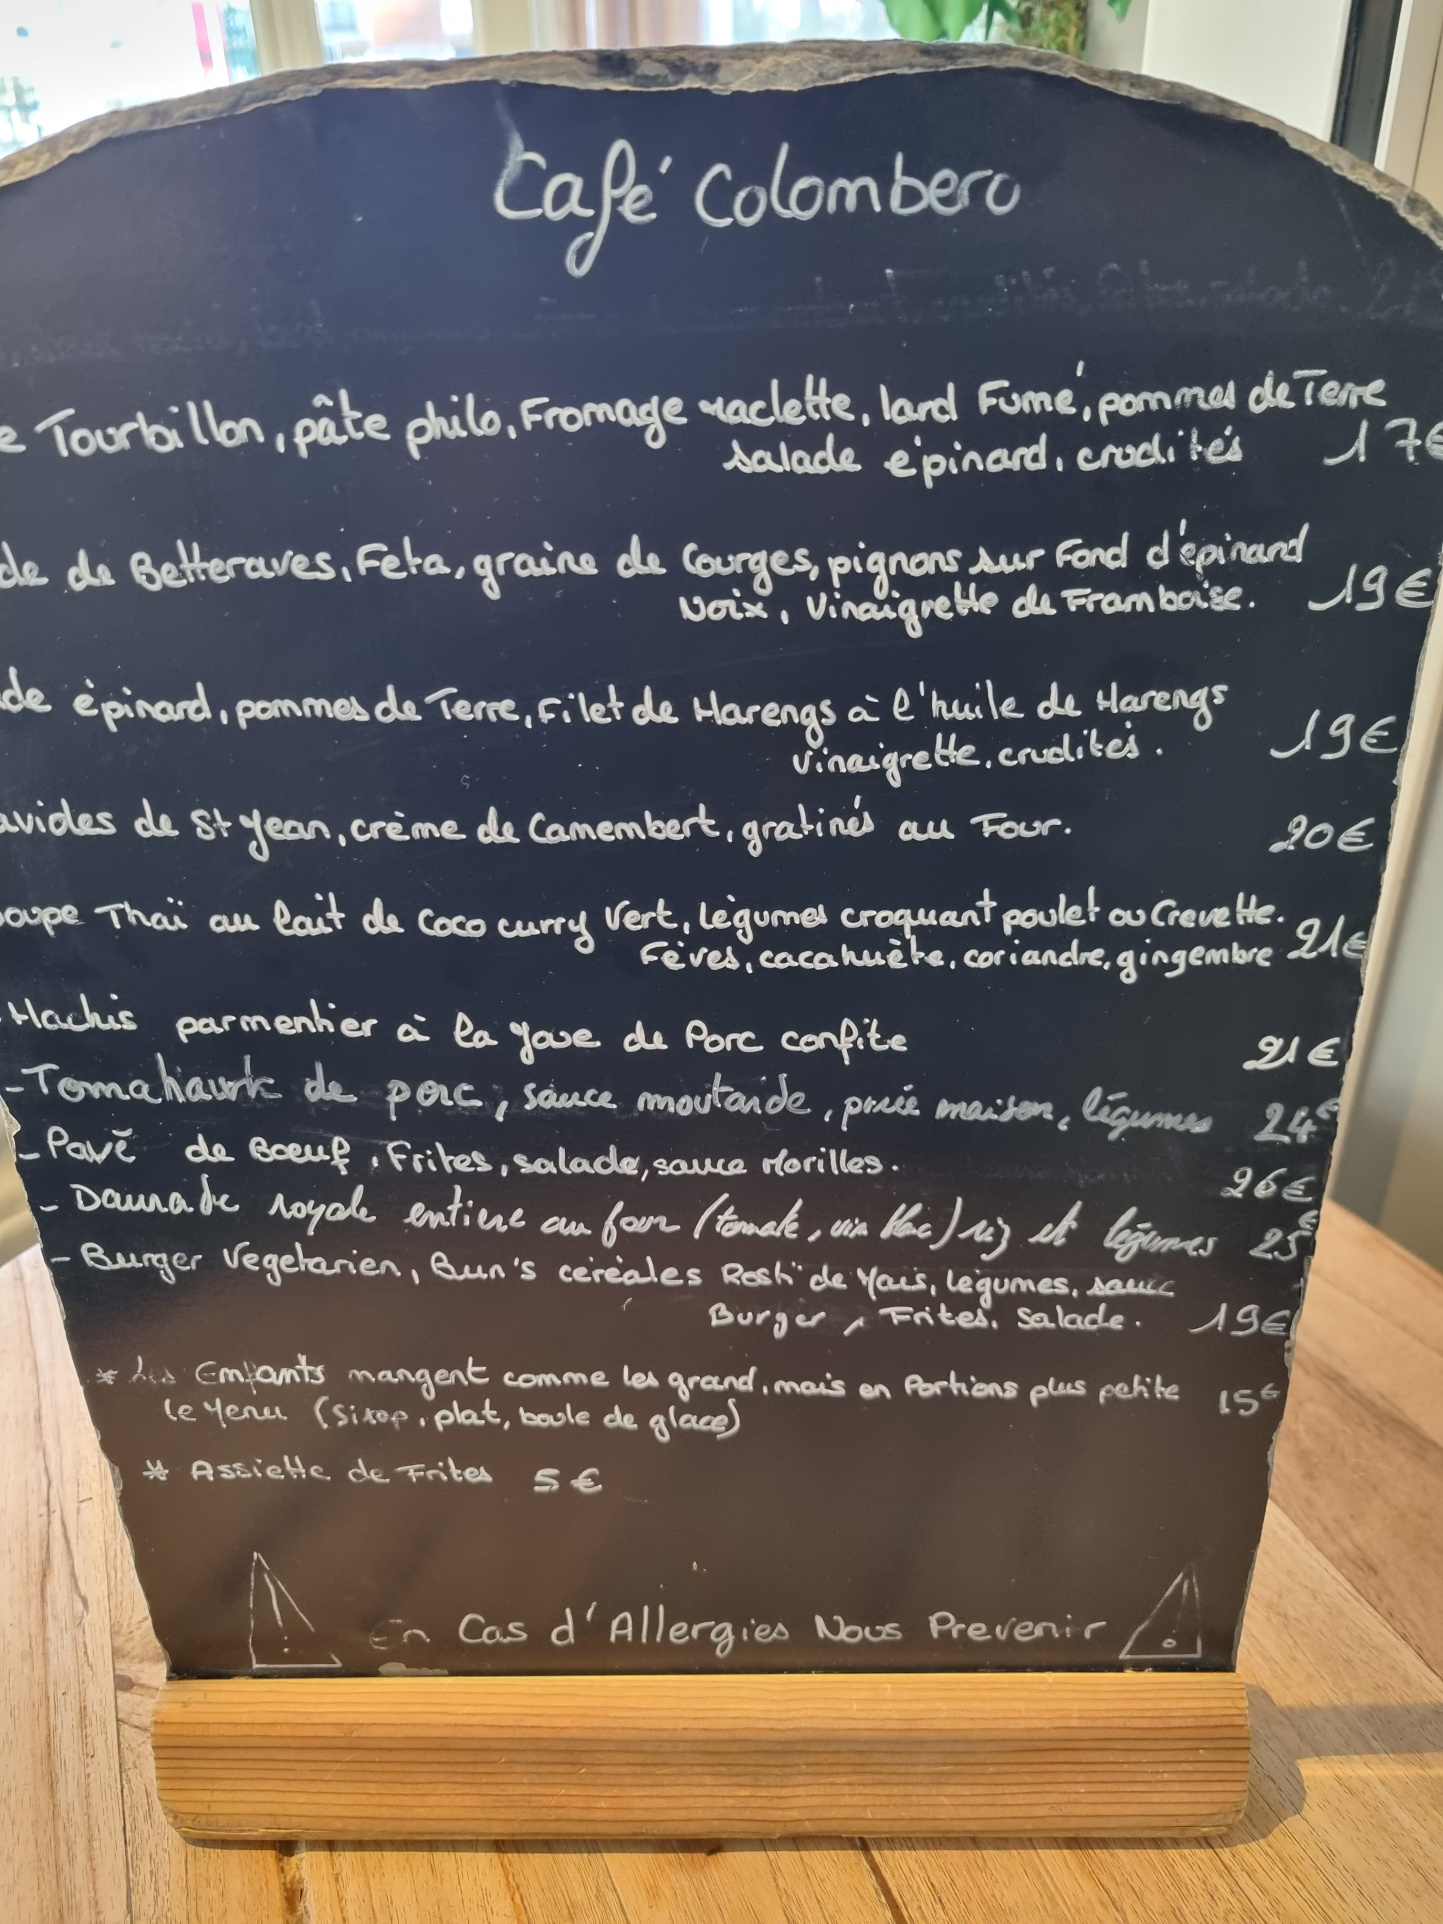 Café Colombero
e Tourbillon, pâte philo, Fromage raclette, lard Fumé, pommes de Terre
salade épinard, crudités 17€
de de Betteraves, Feta, graine de Courges, pignons sur Fond d'épinard
Noix, Vinaigrette de Framboise. 19€
de épinard, pommes de Terre, Filet de Harengs à l'huile de Harengs
Vinaigrette, crudités. 19€
avioles de St Jean, crème de Camembert, gratinés au Four. 20€
oupe Thaï au lait de Coco curry Vert, légumes croquant poulet ou Crevette.
Fèves, cacahuète, coriandre, gingembre 21€
Hachis parmentier à la Joue de Porc confite 21€
- Tomahawk de porc, sauce moutarde, purée maison, légumes 24€
- Pavé de Boeuf, Frites, salade, sauce Morilles. 26€
- Daurade royale entiere au four (tomate, vin blanc) riz et légumes 25€
- Burger Vegetarien, Bun's céréales Rosti de Maïs, légumes, sauce
Burger, Frites, Salade. 19€
* Les Enfants mangent comme les grand, mais en Portions plus petite 15€
le Menu (Sirop, plat, boule de glace)
* Assiette de Frites 5€
En Cas d'Allergies Nous Prevenir